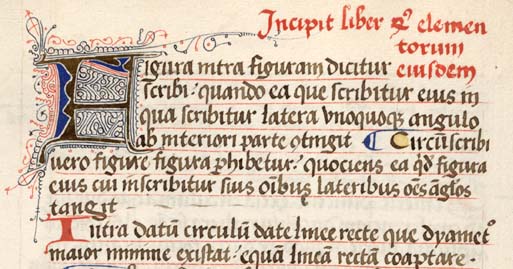 Incipit liber 4ꝰ elemen
torum
eiusdem
Figura intra figuram dicitur
scribi · quando ea que scribitur eius in
qua scribitur latera vnoquoqꝫ angulo
ab interiori parte ↄtingit Circūscribi
uero figure figura ꝓhibetur · quociens ea qď figura
eius cui inscribitur suis oībꝫ lateribus oēs ā̄glos
tangit
Intra datū circulū date linee recte que dyametꝰ
maior minime existat · equā lineā rectā coaptare ·